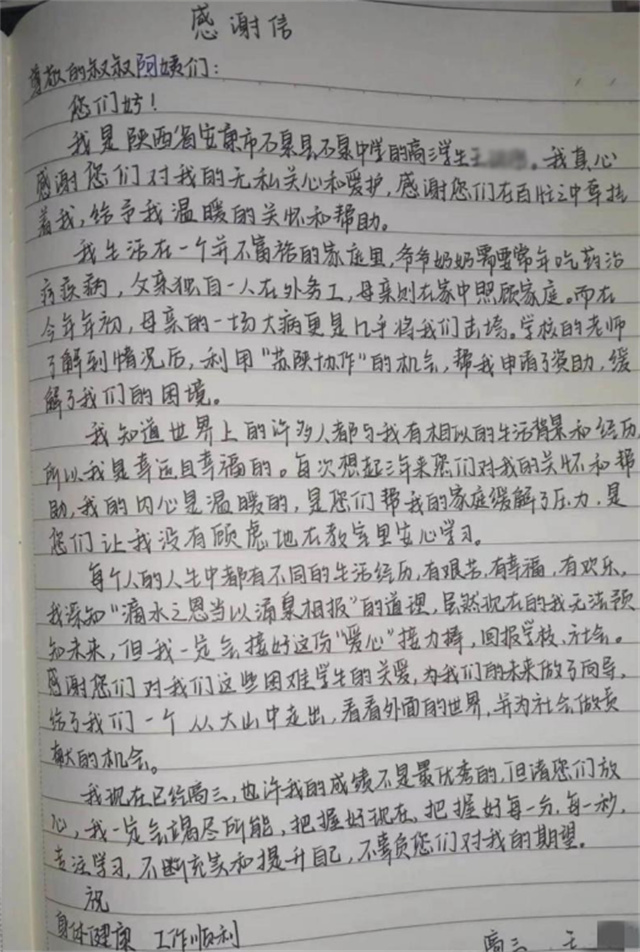 感谢信
尊敬的叔叔阿姨们：
您们好！
我是陕西省安康市石泉县石泉中学的高三学生王。我真心
感谢您们对我的无私关心和爱护，感谢您们在百忙之中牵挂
着我，给予我温暖的关怀和帮助。
我生活在一个并不富裕的家庭里，爷爷奶奶需要常年吃药治
疗疾病，父亲独自一人在外务工，母亲则在家中照顾家庭。而在
今年年初，母亲的一场大病更是几乎将我们击垮。学校的老师
了解到情况后，利用"苏陕协作"的机会，帮我申请了资助，缓
解了我们的困境。
我知道世界上的许多人都与我有相似的生活背景和经历，
所以我是幸运且幸福的。每次想起三年来您们对我的关怀和帮
助，我的内心是温暖的，是您们帮我的家庭缓解了压力，是
您们让我没有顾虑地在教室里安心学习。
每个人的人生中都有不同的生活经历，有艰苦，有幸福，有欢乐，
我深知"滴水之恩当以涌泉相报"的道理，虽然现在的我无法预
知未来，但我一定会接好这份"爱心"接力棒，回报学校、社会。
感谢您们对我们这些困难学生的关爱，为我们的未来做了向导，
给了我们一个从大山中走出，看看外面的世界，并为社会做贡
献的机会。
我现在已经高三，也许我的成绩不是最优秀的，但请您们放
心，我一定会竭尽所能，把握好现在，把握好每一分，每一秒，
专注学习，不断充实和提升自己，不辜负您们对我的期望。
祝
身体健康 工作顺利
高三 王